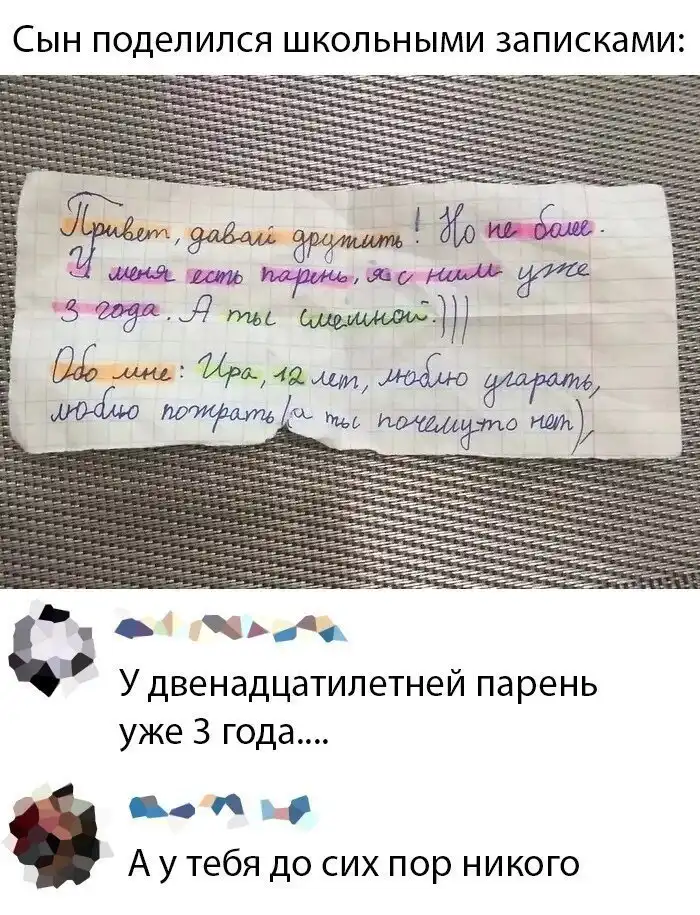 Сын поделился школьными записками:
Привет, давай дружить! Но не более.
У меня есть парень, я с ним уже
3 года. А ты смешной.)))
Обо мне: Ира, 12 лет, люблю угарать,
люблю пожрать (а ты почему-то нет),
У двенадцатилетней парень
уже 3 года....
А у тебя до сих пор никого